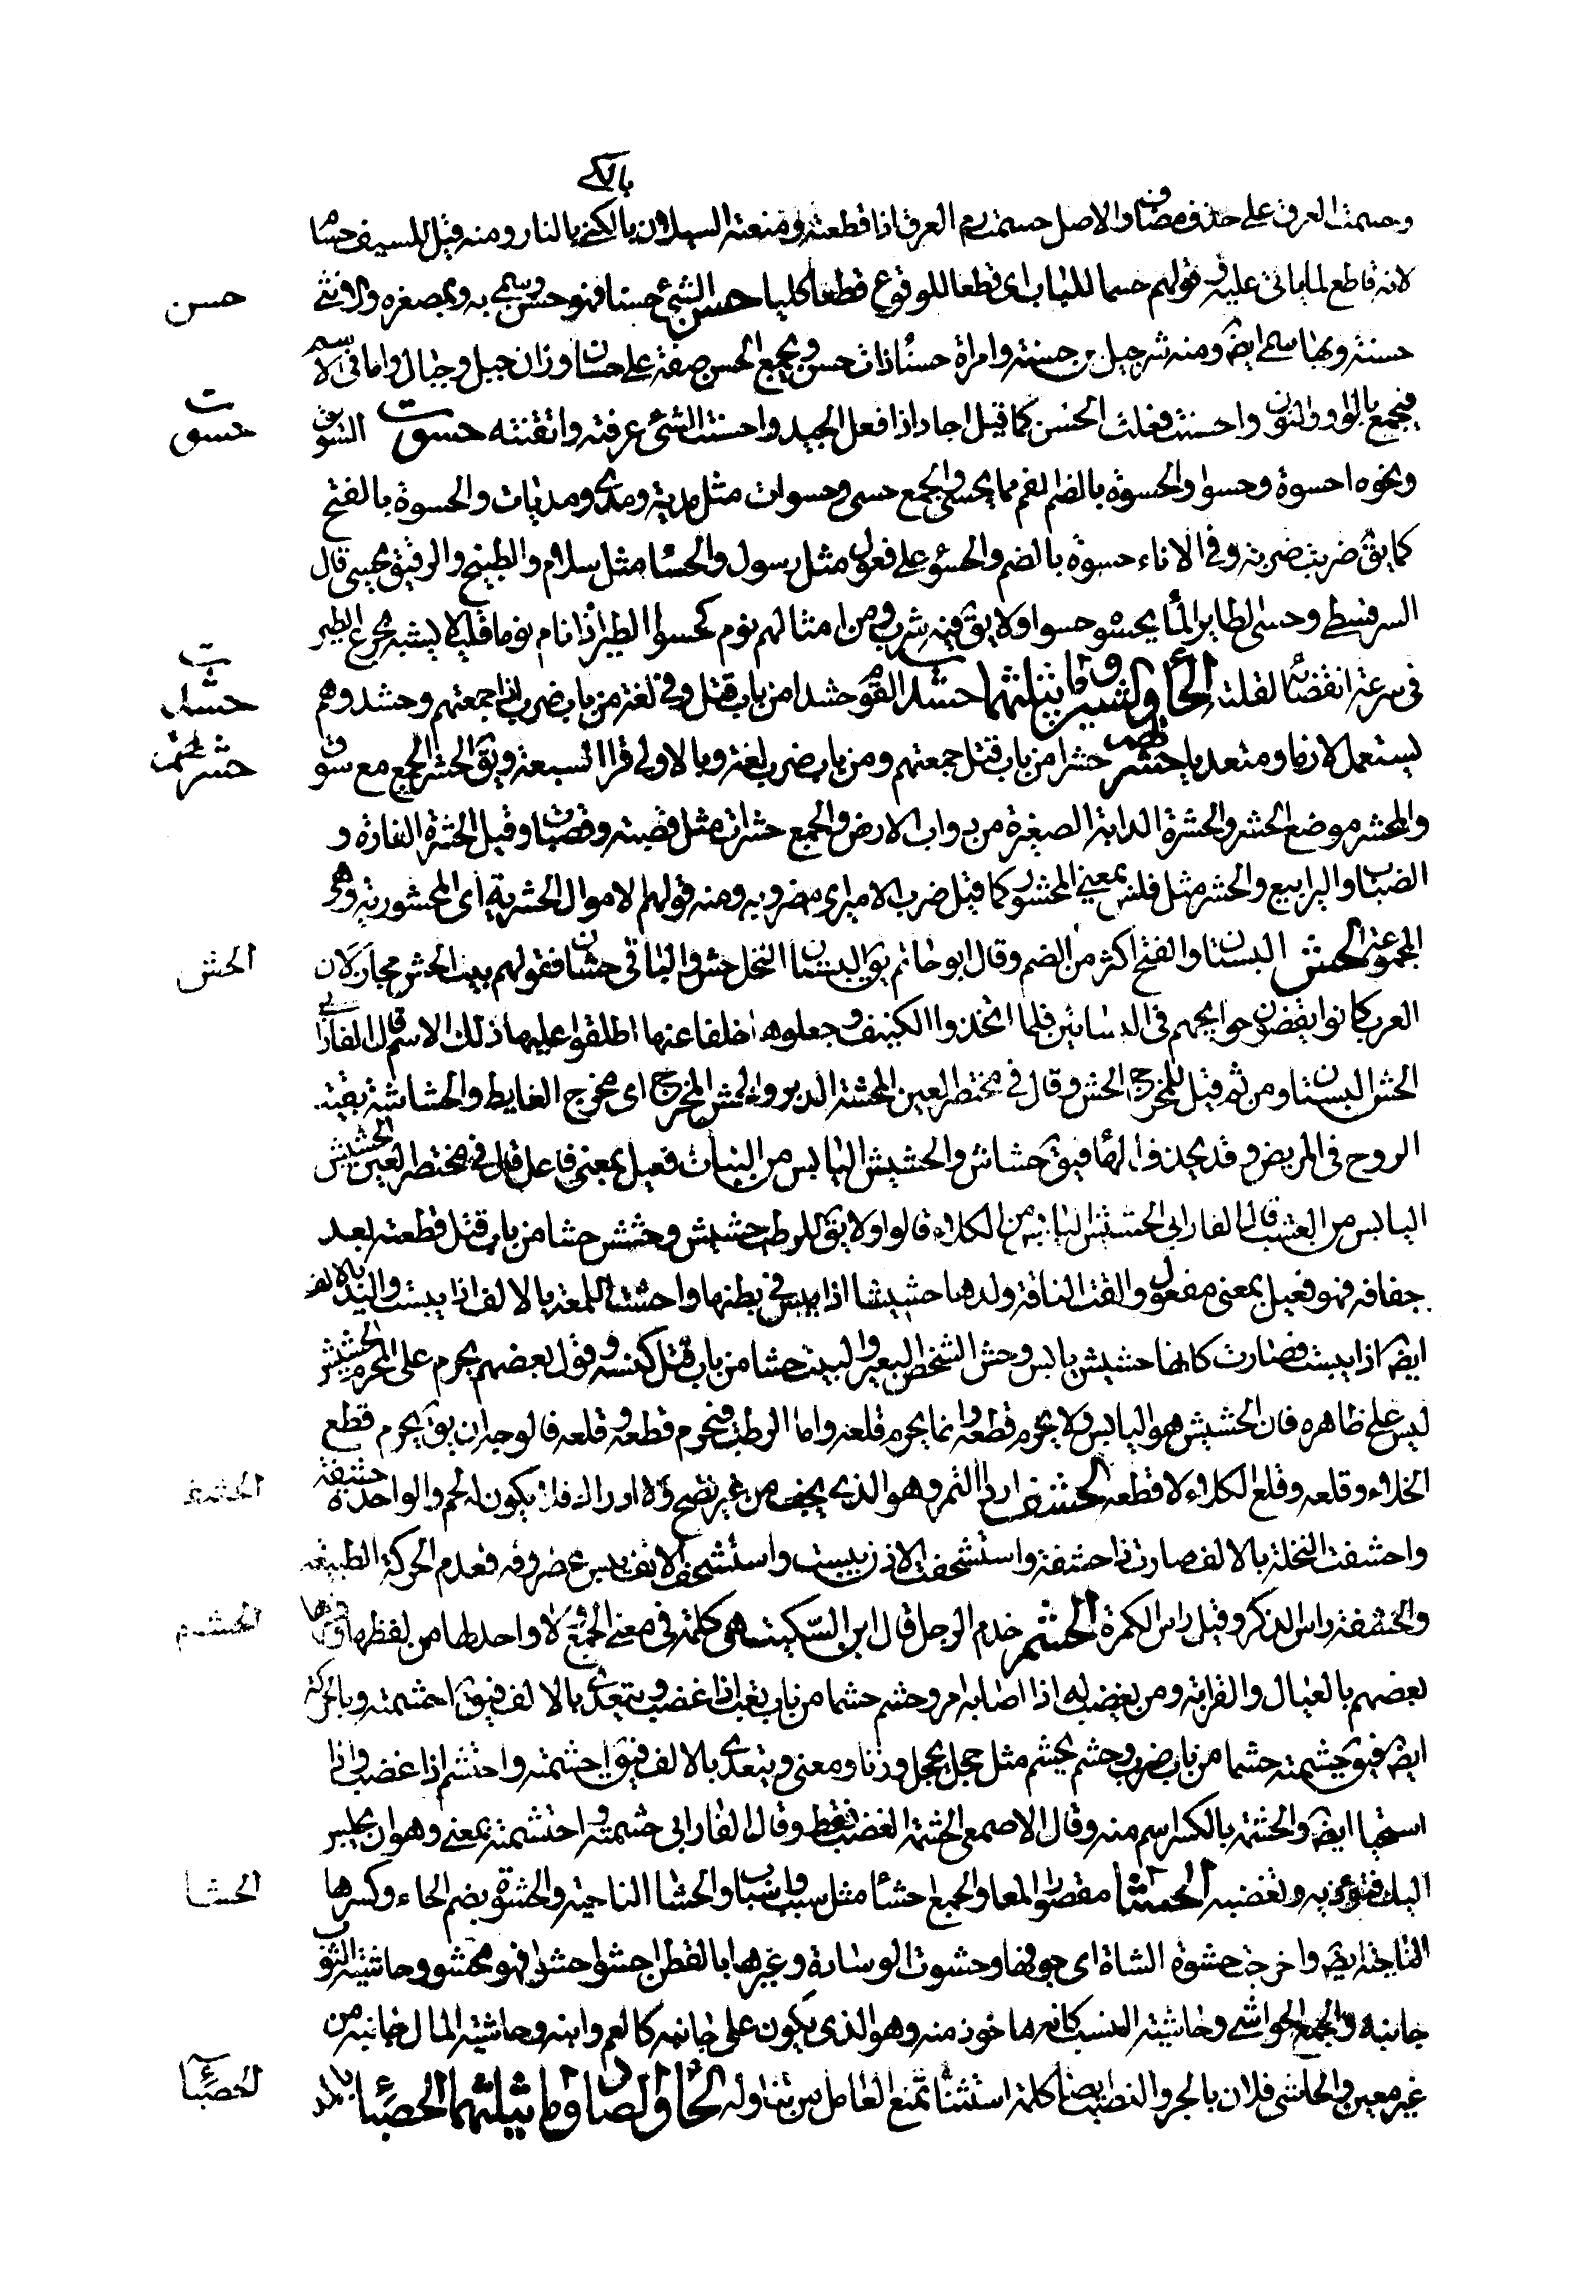 بالكي
وحسمت العرق على حذف مضاف والاصل حسمت دم العرق اذا قطعته ومنعته السيلان بالكي بالنار ومنه قيل للسيف حسام
لانه قاطع لما ياتى عليه وقولهم حسما للباب اى قطعا للوقوع قطعا كليا حسن الشئ حسنا فهو حسن وسمى به وبمصغره والانثى
حسن
حسنة وبها سمى ايض ومنه شرحبيل بن حسنة وامراة حسناء ذات حسن ويجمع الحسن صفة على حسان وزان جبل وجبال واما فى الاسم
فيجمع بالواو والنون واحسنت فعلت الحسن كما قيل اجاد اذا فعل الجيد واحسنت الشئ عرفته واتقنته حسوت السويق
حسوت
ونحوه احسوه حسوا والحسوة بالضم الفم مما يحسى والجمع حسى وحسوات مثل مدية ومدى ومديات والحسوة بالفتح
كما يق ضربت ضربة وفى الاناء حسوة بالضم والحسو على فعول مثل رسول والحسا مثل سلام والطبيخ والرقيق يحسى قال
السرقسطى وحسى الطاير الماء يحسو حسوا ولا يق فيه شرب ومن امثالهم نوم كحسو الطير اذا نام نوما قليلا يشبه بجرع الطير
فى سرعة انقضائه لقلته الحاء والشين وما يثلثهما حشدت القوم حشدا من باب قتل وفى لغة من باب ضرب اذا جمعتهم وحشد وهم
حشدت
يستعمل لازما ومتعديا حشرتهم حشرا من باب قتل جمعتهم ومن باب ضرب لغة وبالاولى قرا السبعة ويق الحشر الجمع مع سوق
حشرتهم
والمحشر موضع الحشر والحشرة الدابة الصغيرة من دواب الارض والجمع حشرات مثل قصبة وقصبات وقيل الحشرة الفارة و
الضباب واليرابيع والحشر مثل فلس بمعنى المحشور كما قيل ضرب الامير اى مضروبه ومنه قولهم الاموال الحشرية اى المحشورية وهى
المجموعة الحش البستان والفتح اكثر من الضم وقال ابو حاتم يق البستان النخل حش والباقى حشان فقولهم بيت الحش مجاز لان
الحش
العرب كانوا يقضون حوايجهم فى البساتين فلما اتخذوا الكنيف وجعلوها خلفا عنها اطلقوا عليها ذلك الاسم قال الفارابى
الحش البستان ومن ثم قيل للمخرج الحش وقال فى مختصر العين المحشة الدبر والحش المخرج اى مخرج الغايط والحشاشة بقية
الروح فى المريض وقد يحذف الهاء فيق حشاش والحشيش اليابس من النبات فعيل بمعنى فاعل قال فى مختصر العين الحشيش
اليابس من العشب قال الفارابى الحشيش اليابس من الكلاء قالوا ولا يق للرطب حشيش وحششته حشا من باب قتل قطعته بعد
جفافه فهو فعيل بمعنى مفعول والقت الناقة ولدها حشيشا اذا يبس فى بطنها واحشت اللمعة بالالف اذا يبست واليد بالالف
ايض اذا يبست فصارت كانها حشيش يابس وحش الشخص البعير والبيت حشا من باب قتل كنسه وقول بعضهم يحرم على المحرم الحشيش
ليس على ظاهره فان الحشيش هو اليابس ولا يحرم قطعه وانما يحرم قلعه واما الرطب فيحرم قطعه وقلعه فالوجه ان يق يحرم قطع
الخلاء وقلعه وقلع الكلاء لا قطعه الحشف اردء التمر وهو الذى يجف من غير نضج ولا ادراك فلا يكون له لحم والواحدة حشفة
الحشف
واحشفت النخلة بالالف صارت ذا حشفة واستشحفت الاذن يبست واستشحف الانف يبس غضروفه فعدم الحركة الطبيعية
والحشفة راس الذكر وقيل راس الكمرة الحشم خدم الرجل قال ابن السكيت هى كلمة فى معنى الجمع ولا واحد لها من لفظها وفسرها
الحشم
بعضهم بالعيال والقرابة ومن يغضب له اذا اصابه امر وحشم حشما من باب تعب اذا غضب ويتعدى بالالف فيق احشمته وبالحركة
ايض فيق حشمته حشما من باب ضرب وحشم يحشم مثل خجل يخجل وزنا ومعنى ويتعدى بالالف فيق احشمته واحتشم اذا غضب واذا
استحيا ايض والحشمة بالكسر اسم منه وقال الاصمعى الحشمة الغضب فقط وقال الفارابى حشمته واحتشمته بمعنى وهو ان يجلس
اليك فتؤذيه وتغضبه الحشا مقصورا المعا والجمع احشاء مثل سبب واسباب والحشا الناحية والحشوة بضم الحاء وكسرها
الحشا
الناحية ايض واخرجت حشوة الشاة اى جوفها وحشوت الوسادة وغيرها بالقطن احشو حشوا فهو محشو وحاشية الثوب
جانبه والجمع الحواشى وحاشية النسب كانه ماخوذ منه وهو الذى يكون على جانبه كالعم وابنه وحاشية المال جانبه من
غير معين والحاشى فلان بالجر والنصب ايضا كلمة استثناء تمنع العامل من تناوله الحاء والصاد وما يثلثهما الحصباء بالمد
الحصباء